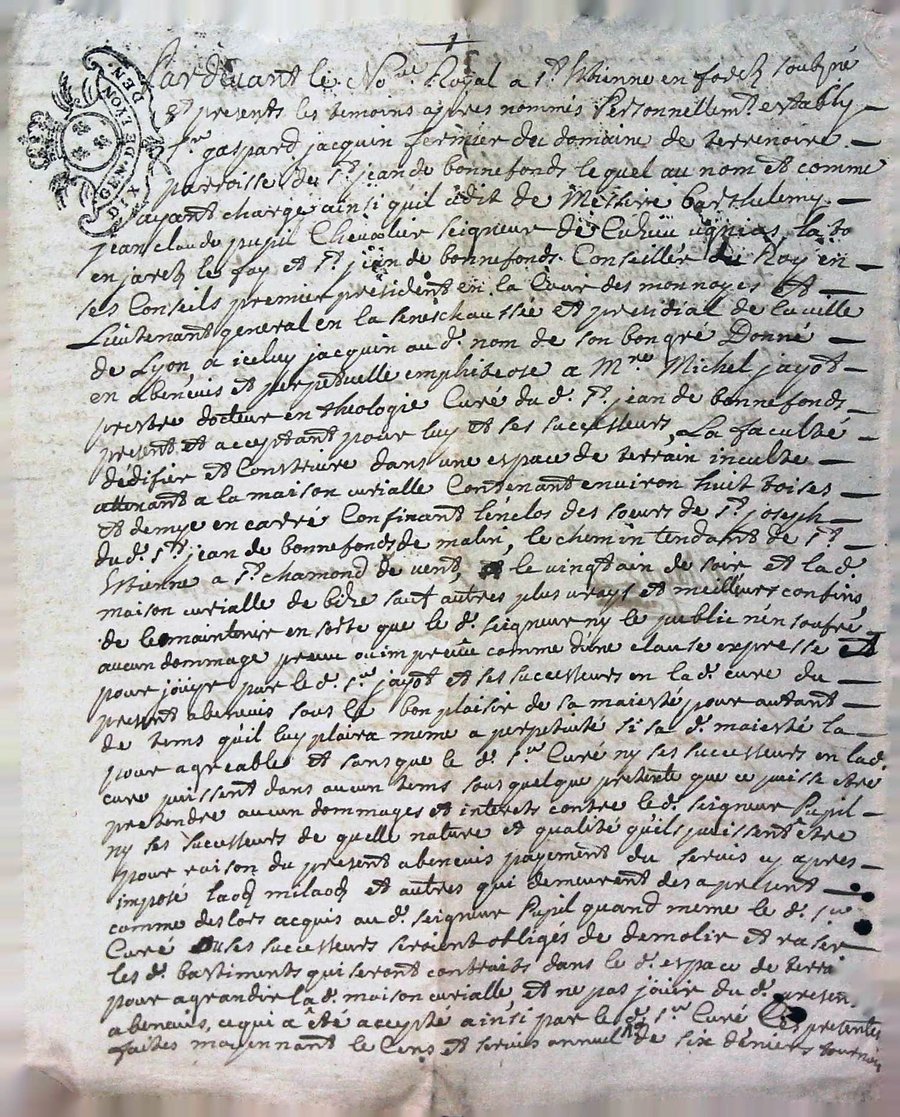 GEN. DE LYON
DIX DEN.
Pardevant le No.re Royal a S.t Etienne en forest soubsigné
Et presents les temoins apres nommés Personnellem.t estably
s.r gaspard jacquin fermier du domaine de terrenoire
parroisse de S.t jean de bonnefonds lequel au nom et comme
ayant charge ainsi quil a dit de Messire barthelemy
jean claude pupil Chevalier seigneur de Cuhieu ugnias la to
en jarest le fay et S.t jean de bonnefonds Conseiller du Roy en
ses Conseils premier president en la Cour des monnoyes et
Lieutenant general en la seneschaussée et presidial de la ville
de Lyon, a iceluy jacquin au d. nom de son bon gré Donné
en abenevis et perpetuelle emphiteose a M.re Michel jayot
prestre docteur en theologie Curé du d. S.t jean de bonnefonds
present et acceptant pour luy et ses successeurs, La faculté
dedifier et Construire dans une espace de terrain inculte
attenant a la maison curialle Contenant environ huit toises
et demye en carré Confinant lenclos des soeurs de S.t joseph
du d. S.t jean de bonnefonds de matin, le chemin tendant de S.t
Etienne a S.t chamond de vent, le vingtain de soir et la d.
maison curialle de bize sauf autres plus vrays et meilleurs confins,
de le maintenir en sorte que le d. seigneur ny le public n'en soufre
aucun dommage preveu ou impreveu comme d'une clause expresse et
pour jöuyr par le d. s.r jayot et ses successeurs en la d. cure du
present abenevis sous le bon plaisir de sa maiesté pour autant
de tems qu'il luy plaira meme a perpetuité si sa d. maiesté la
pour agreable et sans que le d. s.r Curé ny ses successeurs en la d.
cure puissent dans aucun tems sous quelque pretexte que ce puisse etre
pretendre aucun dommages et interets contre le d. seigneur Pupil
ny ses successeurs de quelle nature et qualité qu'ils puissent être
pour raison du present abenevis payement du servis cy apres
imposé laods milaods et autres qui demeurent des apresent
comme deslors acquis au d. seigneur Pupil quand meme le d. s.r
Curé ou ses successeurs seroient obligés de demolir et raser
les d. bastiments qui seront contruits dans le d. espace de terrai
pour agrandir la d. maison curialle, et ne pas jouir du d. presen
abenevis, ce qui a êté accepté ainsi par le d. s.r Curé Ces presentes
faites moyennant le Cens et servis annuel de six deniers tournois